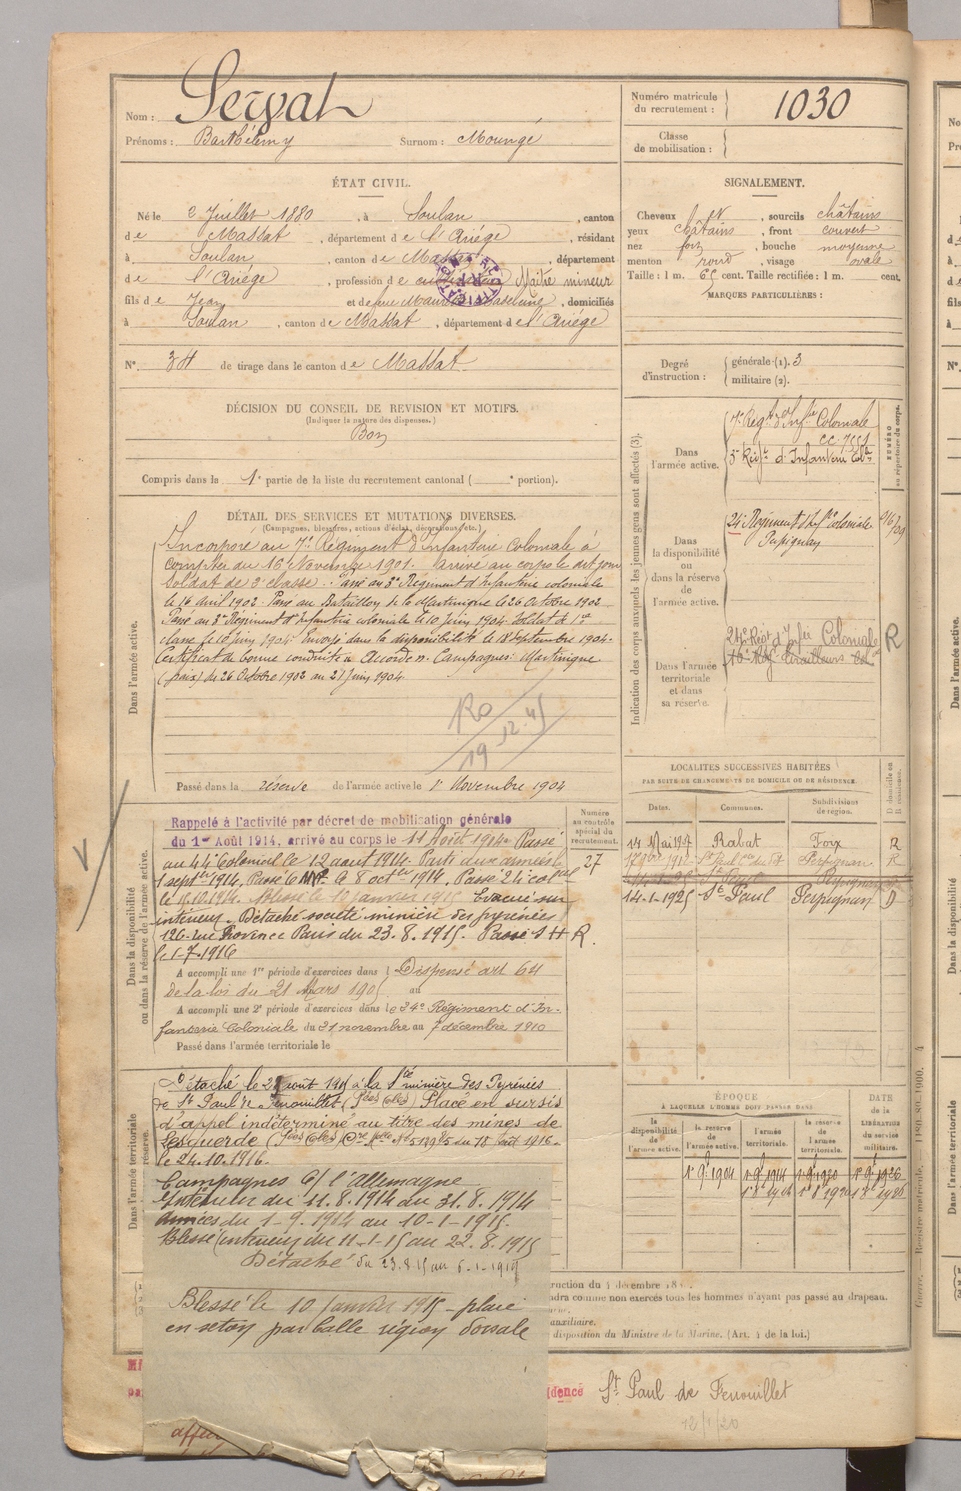 Nom : Servat
Prénoms : Barthélemy Surnom : Moungé
Numéro matricule du recrutement : 1030
Classe de mobilisation :
ÉTAT CIVIL.
Né le 2 Juillet 1880, à Soulan, canton
de Massat, département de l'Ariége, résidant
à Soulan, canton de Massat, département
de l'Ariége, profession de Maître mineur
fils de Jean et de feue Madeleine, domiciliés
à Soulan, canton de Massat, département de l'Ariége
N° 34 de tirage dans le canton de Massat.
SIGNALEMENT.
Cheveux, sourcils châtains
yeux châtains, front couvert
nez fort, bouche moyenne
menton rond, visage ovale
Taille : 1 m. 65 cent. Taille rectifiée : 1 m. cent.
MARQUES PARTICULIÈRES :
Degré d'instruction : générale (1). 3
militaire (2).
DÉCISION DU CONSEIL DE REVISION ET MOTIFS.
(Indiquer la nature des dispenses.)
Bon
Compris dans la 1e partie de la liste du recrutement cantonal ( e portion).
DÉTAIL DES SERVICES ET MUTATIONS DIVERSES.
(Campagnes, blessures, actions d'éclat, décorations, etc.)
Dans l'armée active.
Incorporé au 7e Régiment d'Infanterie Coloniale à
compter du 16 Novembre 1901. arrivé au corps le dit jour
Soldat de 2e classe. Passé au 3e Régiment d'Infanterie coloniale
le 16 Avril 1902. Passé au Bataillon de la Martinique le 26 Octobre 1902
Passé au 3e Régiment d'Infanterie coloniale le 10 juin 1904. Soldat de 1e
classe le 10 juin 1904. Envoyé dans la disponibilité le 18 Septembre 1904.
Certificat de bonne conduite Accordé. Campagnes: Martinique
(paix) du 26 Octobre 1902 au 21 Juin 1904.
Ro
19.12.45
Passé dans la réserve de l'armée active le 1e Novembre 1904
Indication des corps auxquels les jeunes gens sont affectés (3).
NUMÉRO au répertoire du corps.
Dans l'armée active.
7e Régt d'Infie Coloniale
3e Régt d'Infanterie Cole
Dans la disponibilité ou dans la réserve de l'armée active.
24e Régiment d'Infie Coloniale
Perpignan
Dans l'armée territoriale et dans sa réserve.
24e Régt d'Infie Coloniale R
Dans la disponibilité ou dans la réserve de l'armée active.
Numéro au contrôle spécial du recrutement.
27
Rappelé à l'activité par décret de mobilisation générale
du 1er Août 1914, arrivé au corps le 11 Août 1914. Passé
au 44e Colonial le 12 aout 1914. Parti aux armées le
1 septbre 1914. Passé le 8 octbre 1914. Passé 24e colal
le 15.10.1914. Blessé le 10 janvier 1915 Evacué sur
intérieur. Détaché société minière des pyrénées
126 rue Provence Paris du 23.8.1915. Passé S H R.
le 1-7-1916
A accompli une 1re période d'exercices dans l Dispensé art 64
de la loi du 21 Mars 1905 au
A accompli une 2e période d'exercices dans le 24e Régiment d'In-
fanterie Coloniale du 21 novembre au 7 décembre 1910
Passé dans l'armée territoriale le
LOCALITÉS SUCCESSIVES HABITÉES
PAR SUITE DE CHANGEMENTS DE DOMICILE OU DE RÉSIDENCE.
Dates. Communes. Subdivisions de région. D domicile ou R résidence.
14 Mai 1907 Rabat Foix R
Perpignan R
14-1-1925 St Paul Perpignan D
ÉPOQUE
À LAQUELLE L'HOMME DOIT PASSER DANS
la disponibilité de l'armée active. la réserve de l'armée active. l'armée territoriale. la réserve de l'armée territoriale.
DATE de la LIBÉRATION du service militaire.
Dans l'armée territoriale
réserve.
Détaché le 2 août 1915 à la Sté minière des Pyrénées
de St Paul de Fenouillet (Pées Oles) Placé en sursis
d'appel indéterminé au titre des mines de
Lesquerde
le 24.10.1916.
Campagnes C/ l'Allemagne
Intérieur du 11.8.1914 au 31.8.1914
Armées du 1-9-1914 au 10-1-1915.
Blessé (intérieur) du 11-1-15 au 22.8.1915
Détaché du 23.8.15 au 6-1-1919
Blessé le 10 Janvier 1915 - plaie
en séton par balle région dorsale
ruction du 4 décembre 18
ndra comme non exercés tous les hommes n'ayant pas passé au drapeau.
auxiliaire.
disposition du Ministre de la Marine. (Art. 4 de la loi.)
idence St Paul de Fenouillet
12/1/20